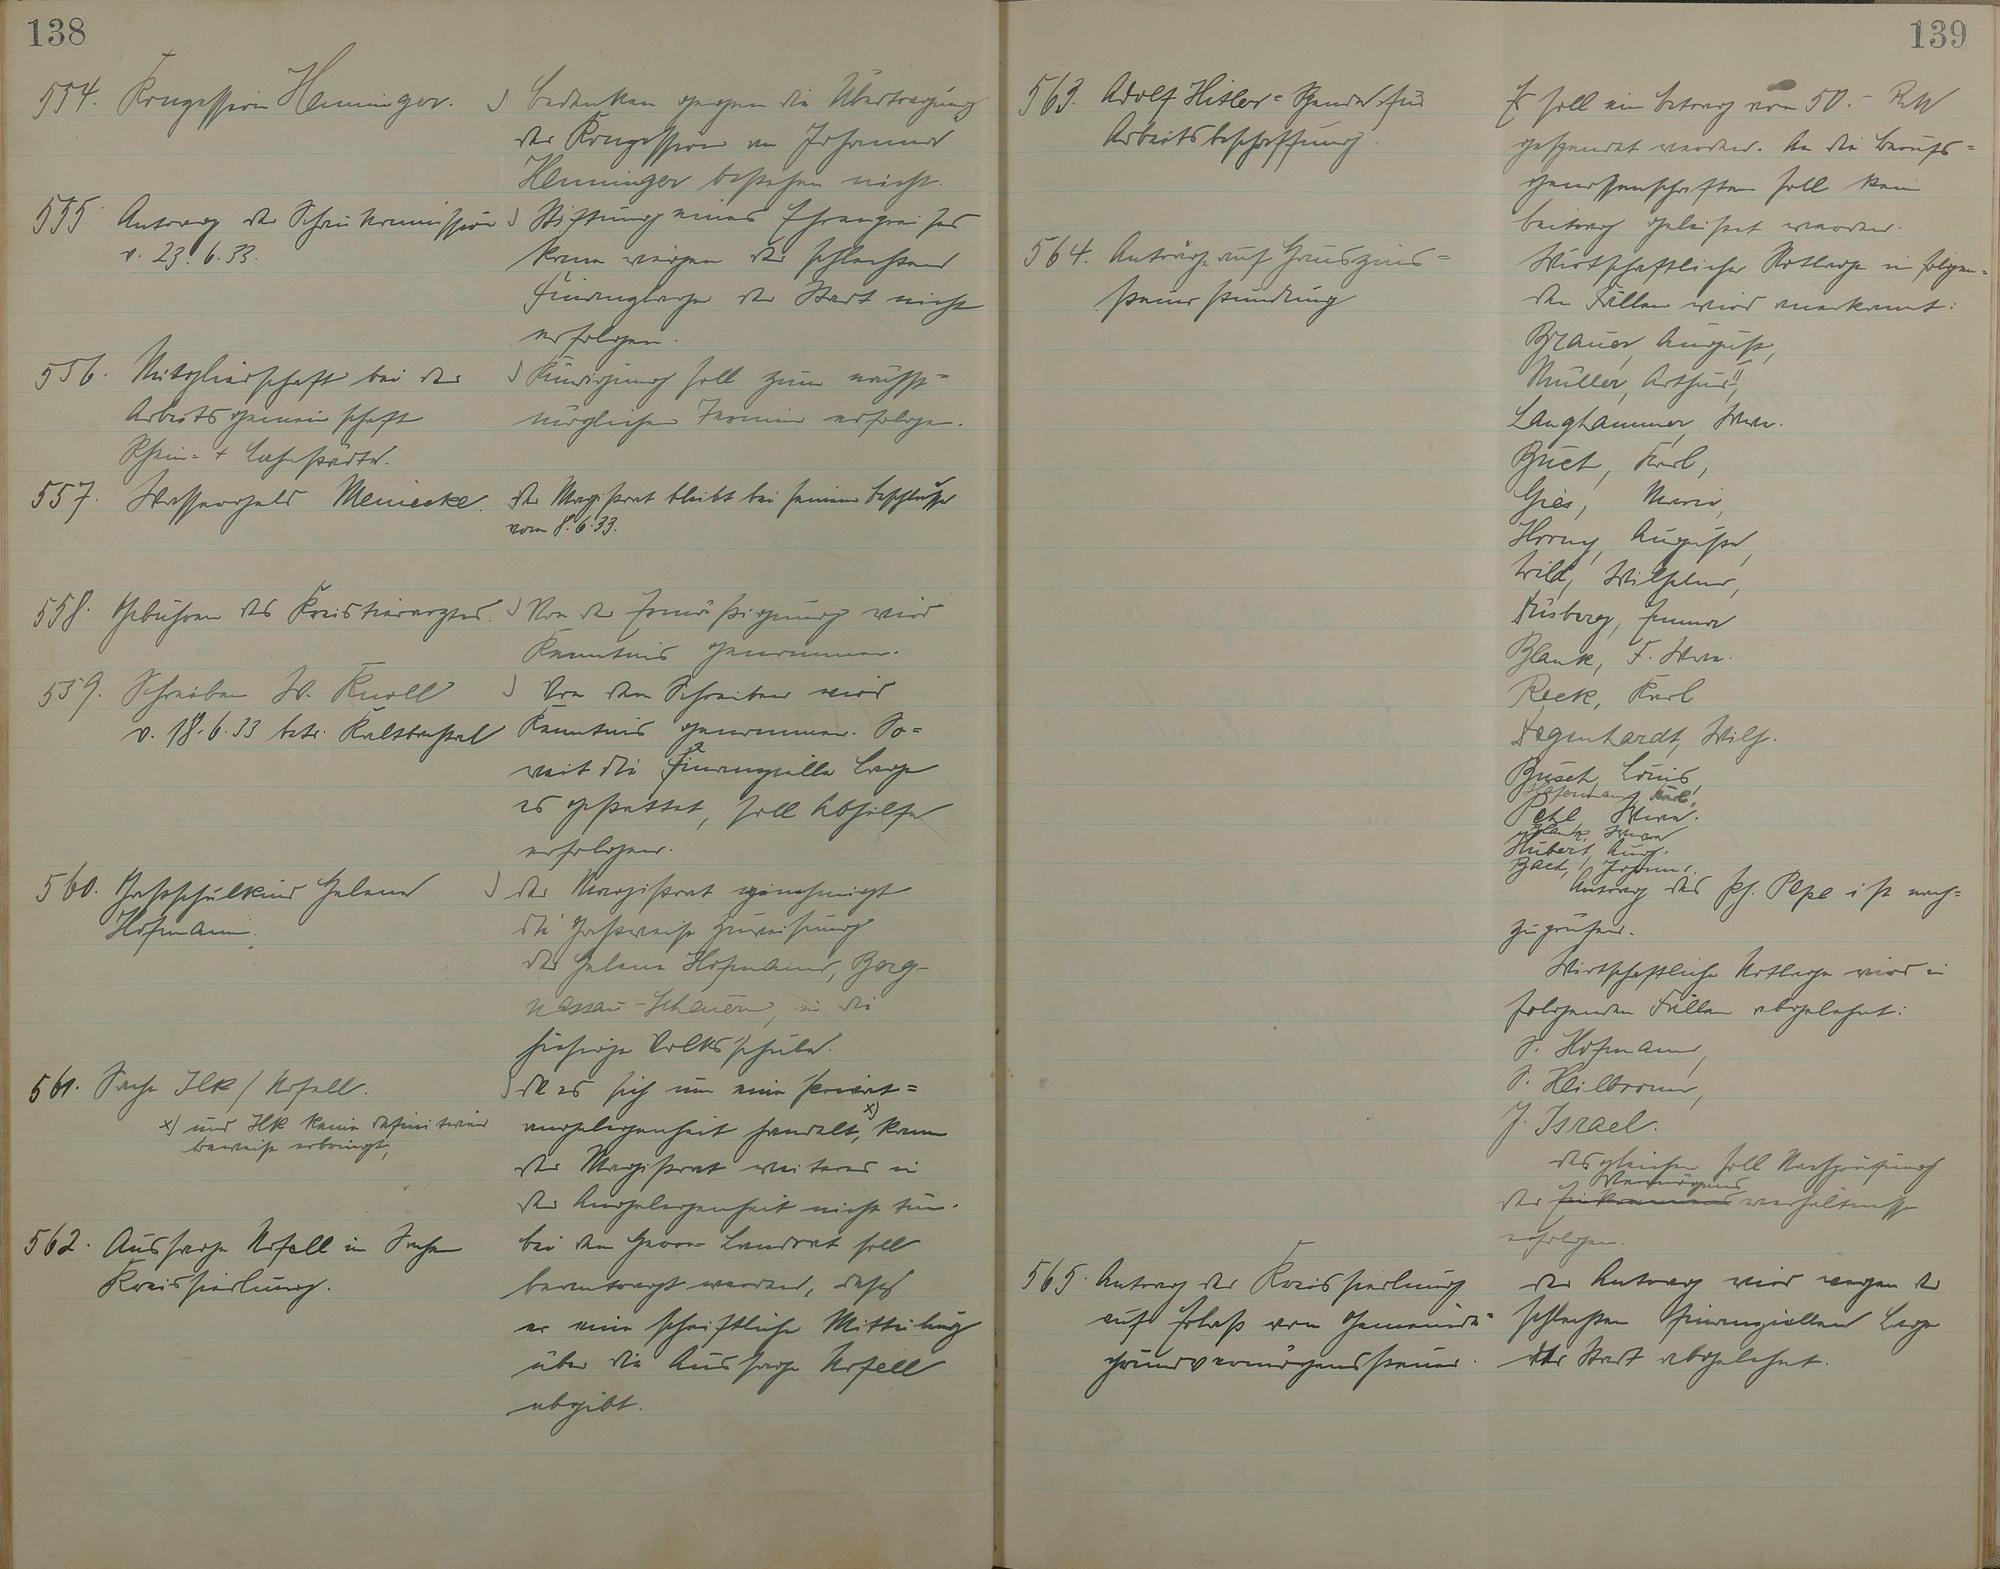 138
554. Konzession Henninger.
Bedenken gegen die Übertragung
der Konzession an Johanna
Henninger bestehen nicht.
555 Antrag der Schaukommission
v. 23.6.33.
Stiftung eines Ehrenpreises
kann wegen der schlechten
Finanzlage der Stadt nicht
erfolgen.
556. Mitgliedschaft bei der
Arbeitsgemeinschaft
Rhein- + Lahnstädte.
Kündigung soll zum nächst=
möglichen Termin erfolgen.
557. Wassergeld Meinecke.
Der Magistrat bleibt bei seinem Beschlusse
vom 8.6.33.
558. Gebühren des Kreistierarztes.
Von der Ermäßigung wird
Kenntnis genommen.
559. Schreiben W. Knoll
v. 18.6.33 betr.
Von dem Schreiben wird
Kenntnis genommen. So=
weit die finanzielle Lage
es gestattet, soll Abhilfe
erfolgen.
560. Gastschulkind Helene
Hofmann.
Der Magistrat genehmigt
die gastweise Zuweisung
der Helene Hofmann, Berg-
nassau-Scheuern, in die
hiesige Volksschule.
561. Sache Ilk / Nosell.
x) und Ilk keine definitiven
Beweise erbringt,
Da es sich um eine Privat=
angelegenheit handelt, x) kann
der Magistrat weiteres in
der Angelegenheit nicht tun.
562. Aussage Nosell in Sachen
Kreissiedlung.
Bei dem Herrn Landrat soll
beantragt werden, daß
er eine schriftliche Mitteilung
über die Aussage Nosell
abgibt.
139
563. Adolf Hitler=Spende für
Arbeitsbeschaffung.
Es soll ein Betrag von 50.- RM
gespendet werden. An die Berufs=
genossenschaften soll kein
Beitrag geleistet werden.
564. Anträge auf Hauszins=
steuerstundung
Wirtschaftliche Notlage in folgen=
den Fällen wird anerkannt:
Brauer, August,
Müller, Arthur II,
Langhammer, Wwe.
Buch, Karl,
Gies, Maria,
Horny, Auguste,
Wild, Wilhelm,
Düsberg, Emma
Blank, F. Wwe.
Reck, Karl
Degenhardt, Wilh.
Busch, Louis,
Karl,
Pehl, Wwe.
Wwe
Hubert, Aug.
Bach, Johann.
Antrag des Pg. Pepe ist nach=
zuprüfen.
Wirtschaftliche Notlage wird in
folgenden Fällen abgelehnt:
S. Hofmann,
S. Heilbronn,
J. Israel.
Desgleichen soll Nachprüfung
Vermögens
der Einkommens verhältnisse
erfolgen.
565. Antrag der Kreissiedlung
auf Erlass von Gemeinde=
grundvermögenssteuer.
Der Antrag wird wegen der
schlechten finanziellen Lage
der Stadt abgelehnt.